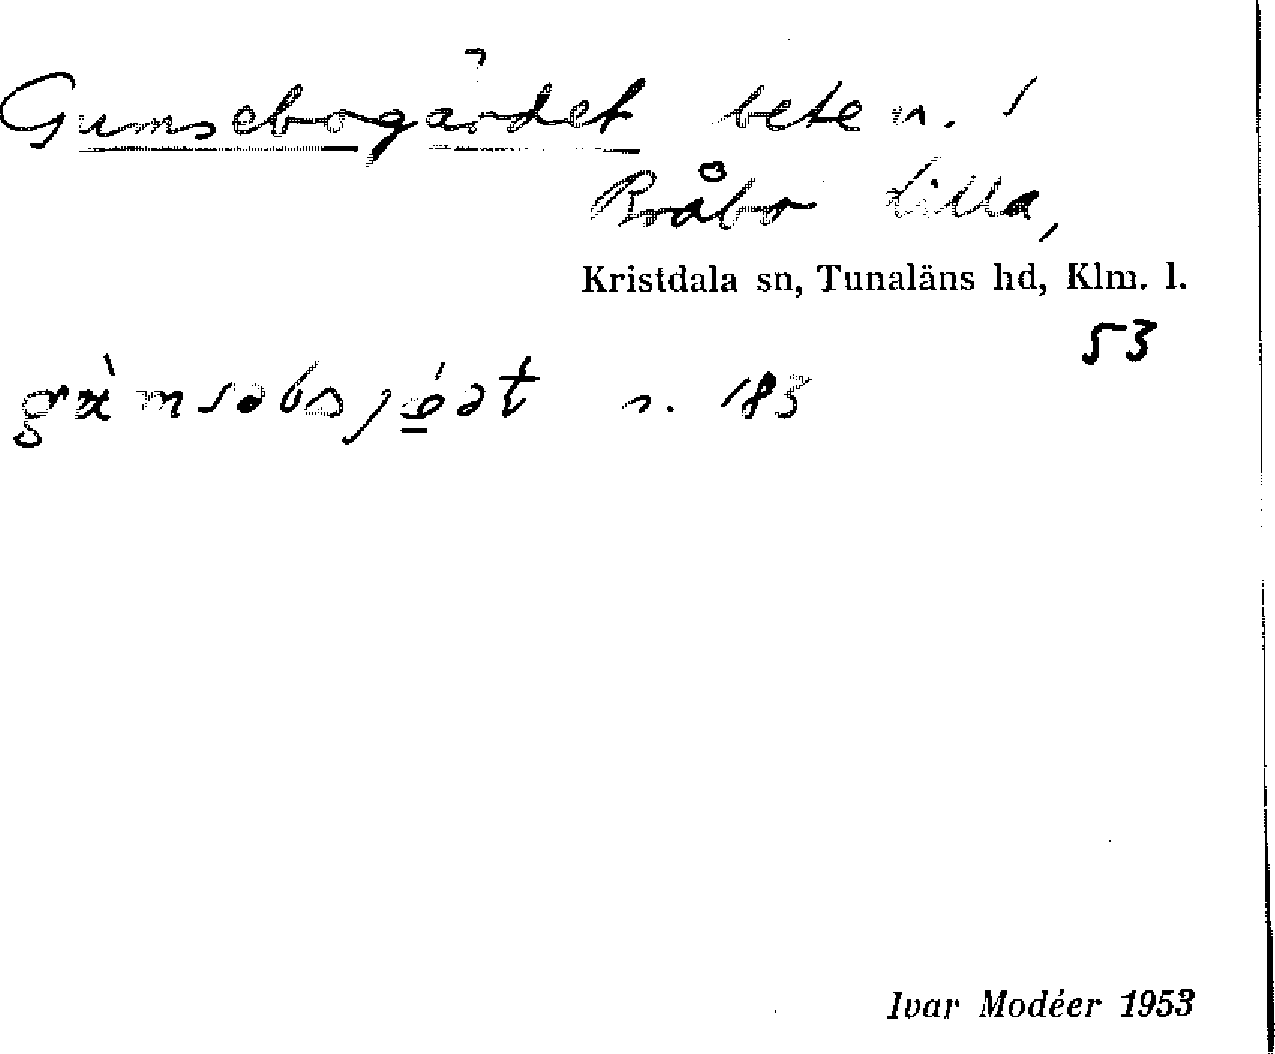 Gumsebogärdet bete n. i
Bråbo Lilla,
Kristdala sn, Tunaläns hd, Klm. l.
53
n. 183
Ivar Modéer 1953